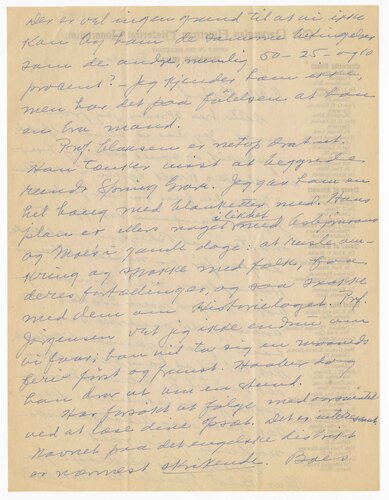 Der er vel ingen grund til at vi ikke
kan ha ham te paa samme betingelser
som de andre, nemlig 50-25- og 10
procent? - Jeg kjender ham ikke,
men har det paa følelsen at han
er bra mand.
Prof. Clausen er netop dratt ut.
Han tenker visst at begynde
rundt Spring Grove. Jeg gav ham en
hel haug med blanketter med. Hans
plan er ellers noget i likhet med Asbjørnsens
og Moe's i gamle dage: at rusle om-
kring og snakke med folk, faa
deres fortællinger, og saa snakke
med dem om Historielaget. Prof.
Jørgensen vet jeg ikke endnu om
vi faar; han vil ta sig en maaneds
ferie først og fremst. Haaber dog
han drar ut om en stund.
Har forsøkt at følge med oversættel
ved at læse dine Ipsat. Det er interessant.
Navnet paa det engelske distrikt
er nærmest skrikende.